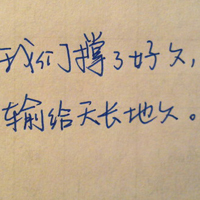 我们撑了好久,
输给天长地久。